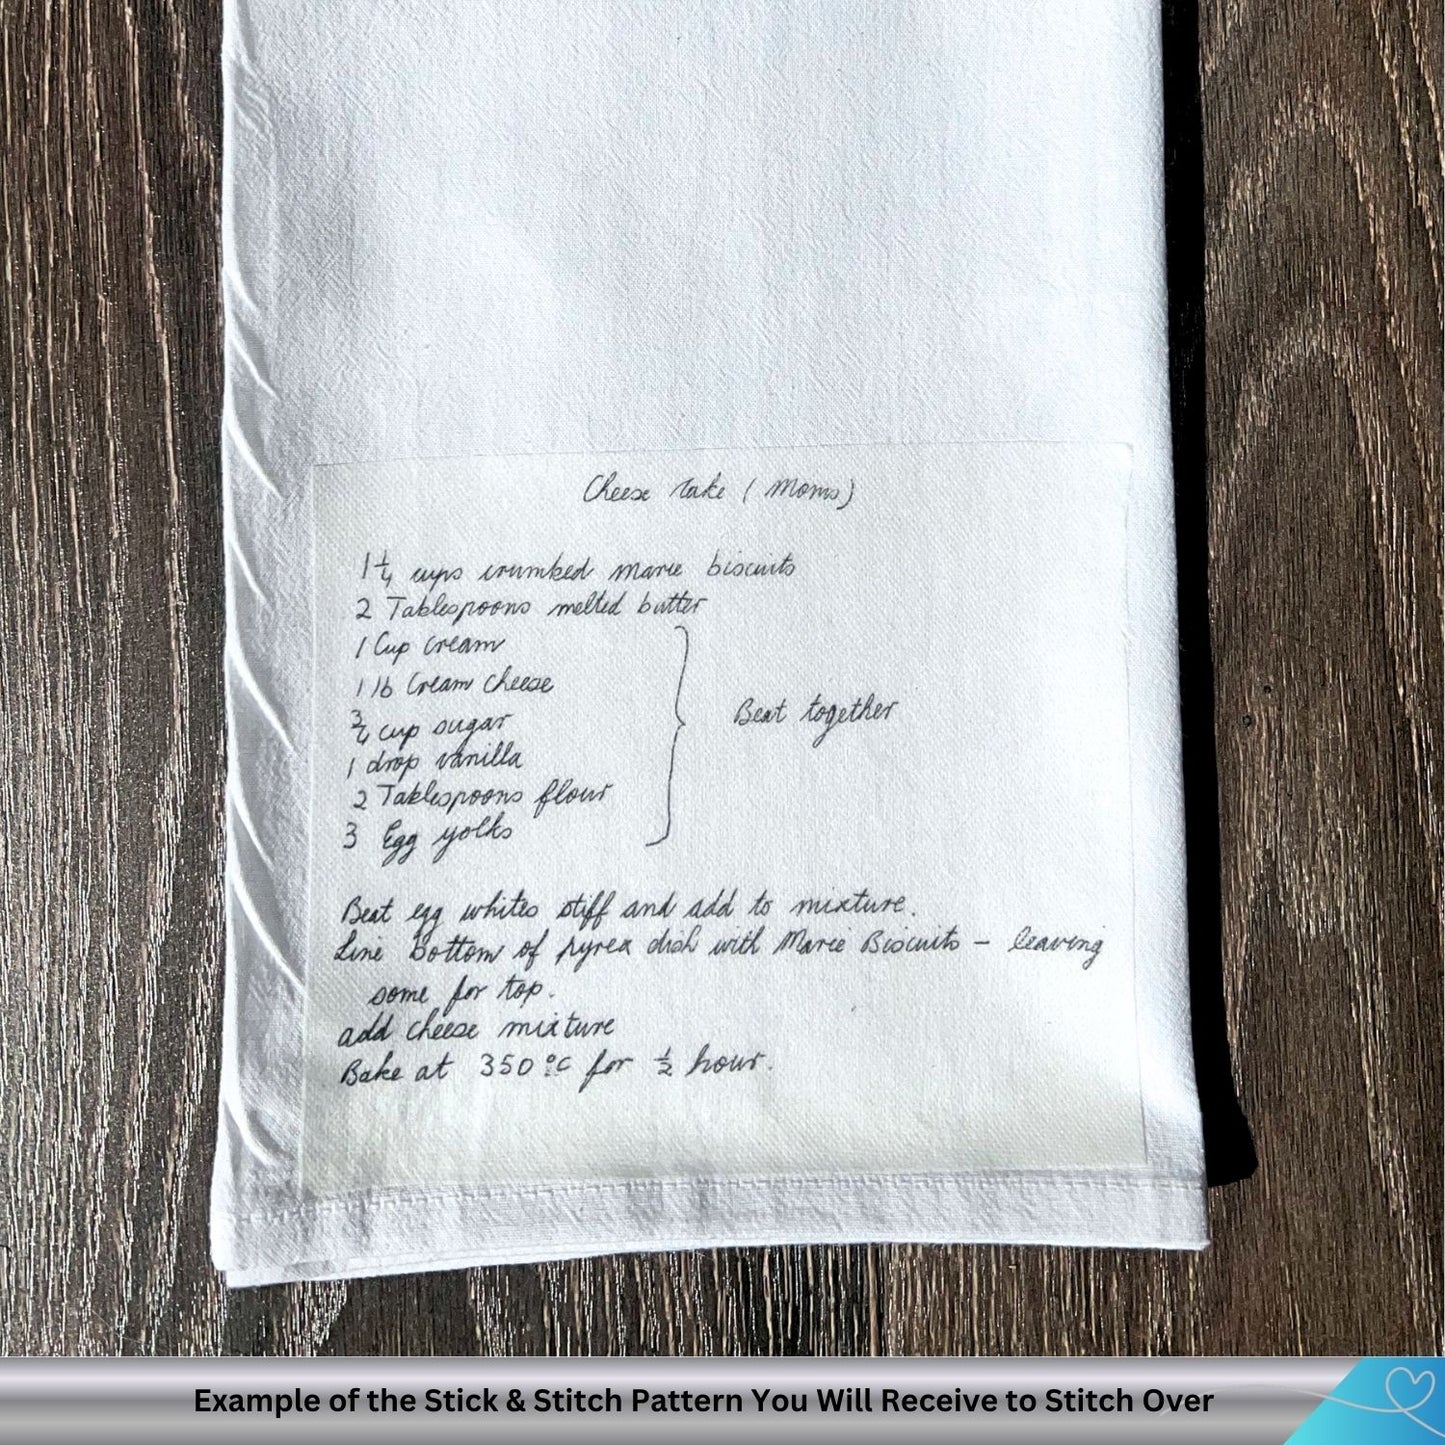 Cheese Cake (Moms)
1 1/4 cups crumbed marie biscuits
2 Tablespoons melted butter
1 Cup cream
1 lb Cream cheese
3/4 cup sugar
1 drop vanilla
2 Tablespoons flour
3 Egg yolks
Beat together
Beat egg whites stiff and add to mixture.
Line bottom of pyrex dish with Marie Biscuits - leaving
some for top.
add cheese mixture
Bake at 350°C for 1/2 hour.
Example of the Stick & Stitch Pattern You Will Receive to Stitch Over